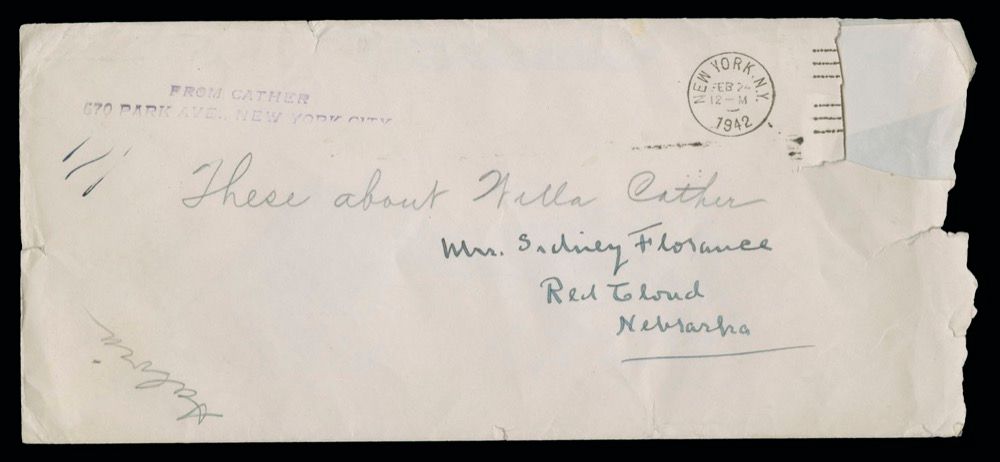 FROM CATHER
670 PARK AVE., NEW YORK CITY
NEW YORK, N.Y.
FEB 24
12-M
1942
These about Willa Cather
Mrs. Sidney Florance
Red Cloud
Nebraska